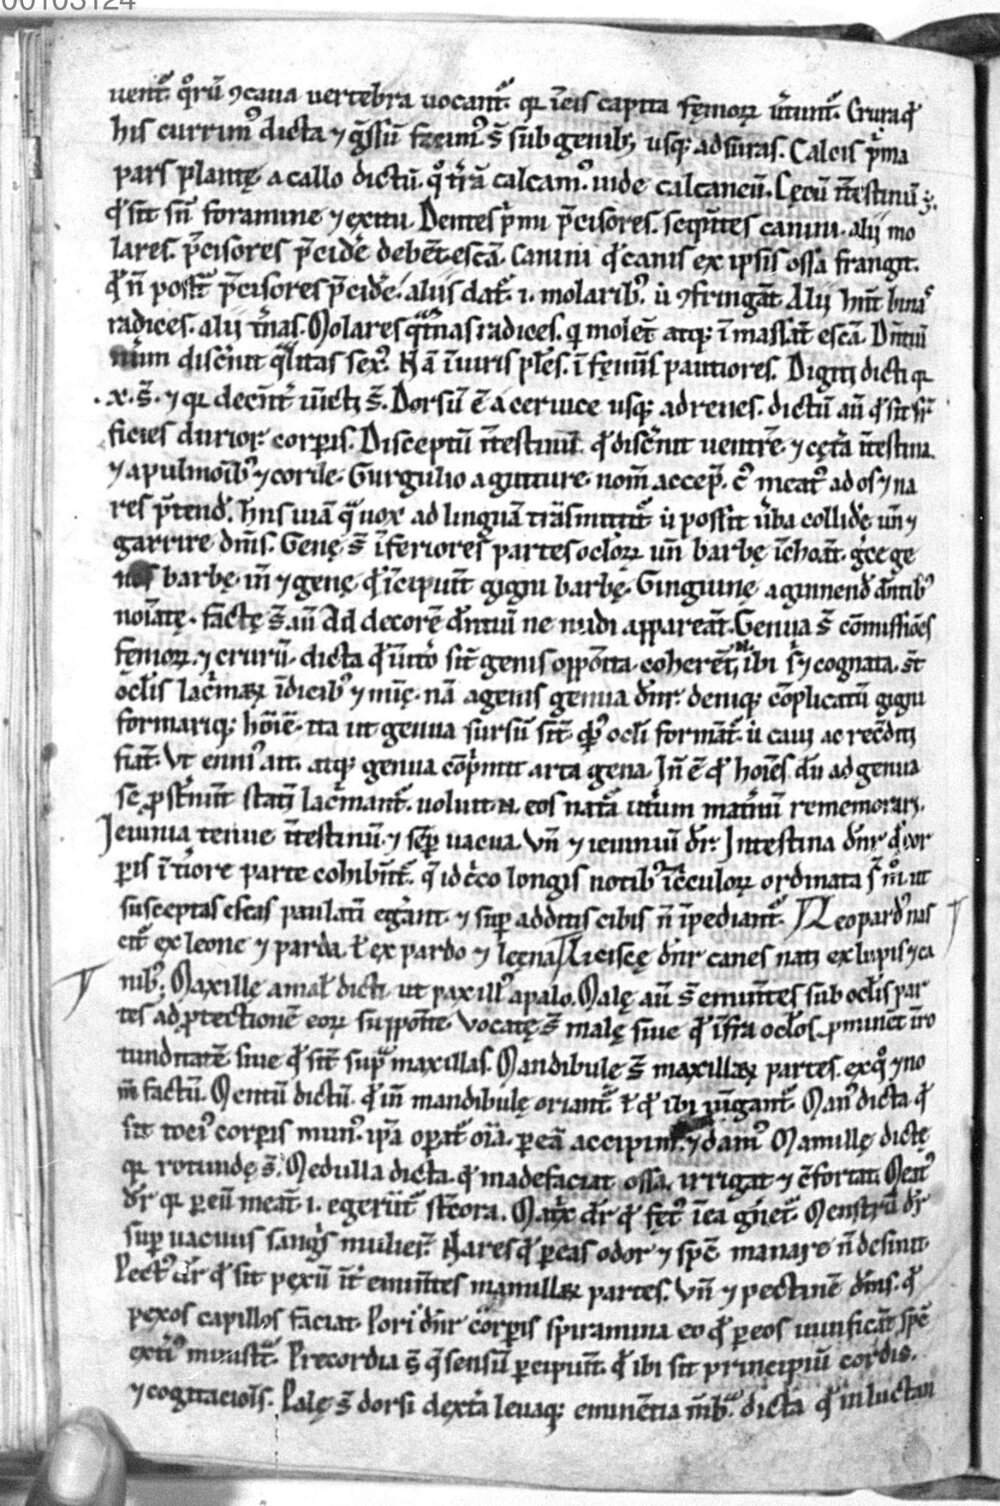 00103124
uent᷑. qͦrū ꝯcaua uertebra uocant᷑. qꝛ ī eis capita femoꝝ ũtunt᷑. Crura qđ
his currim᷒ dicta ⁊ g̃ssū facim᷒. s̄ sub genib; usq; ad suras. Calcis p̃ma
pars plantę a callo dictū. qͦ t̃rā calcam᷒. inde calcaneū. Cęcū ītestinū ÷.
qđ sit sn̄ foramine ⁊ exitu. Dentes p̃mi p̃cisores. seq̄ntes canini. alij mo
lares. p̃cisores p̃cid̃e debēt escā. canini qđ canis ex ipsis ossa frangit.
qđ n̄ poss̄t p̃cisores p̃cid̃e. aliis dat᷑. i. molarib᷒. ut ꝯfringāt. Alij hn̄t binas
radices. alij t̃nas. Molares q̃t̃nas radices. qi molēt atq; ī massāt escā. Dn̄tiū
num̄m disc̃nit q̃litas sex᷒. Nā ī uiris pl̃es. ī femīs pautiores. Digiti dicti qꝛ
.x. s̄. ⁊ qꝛ decent̃ iūcti s̄. Dorsū ē a ceruice usq; ad renes. dictū aū qđ sit sup̃
ficies durior corp̃is. Disceptū ītestinū. qđ disc̃nit uentr̃e ⁊ cęt̃a ītestina.
⁊ a pulmoīb᷒ ⁊ corde. Gurgulio a gutture nom̄ accep̃. c᷒ meat᷒ ad os ⁊ na
res p̃tend᷑. hn̄s uiā q̃ uox ad linguā trāsmittit᷑ ut possit ũba collid̃e un̄ ⁊
garrire dm̃s. Genę s̄ īferiores partes ocl̃oꝝ un̄ barbę īchoāt. gꝛ̃ce ge
nos barbę. in̄ ⁊ genę. qđ īcipiūt gigni barbę. Gingiuę a ginnend̃ dn̄tib᷒
noīatę. factę s̄ aū ad decorē dn̄tiū ne nudi appareāt. Genua s̄ cōmissiōes
femoꝝ ⁊ cruꝝ. dicta qđ ī ut̃o sīt genis opp̃oita. coherēt n. ibi s̄ ⁊ cognata. s̄t
ocl̃is lac̃maꝝ īdicib᷒ ⁊ mīę. nā a genis genua dn̄r. deniq; cōplicatū gigni
formariq; hoīem. ita ut genua sursū sīt. qb᷒ ocl̃i formāt᷑ ut caui ac recōditi
fiāt. Vt enni᷒ ait. atq; genua cōprimit arta gena. In̄ ē qđ hoīes dū ad genua
se ꝓst̃nūt stati lac̃mant᷑. uoluit n. eos natã ut̃um mat̃nū rememorari.
Ieiunia tenue ītestinū. ⁊ semp̃ uacua. Vn̄ ⁊ ieiuniū dr̃. Intestina dn̄r qđ cor
p̃is ī t̃iore parte cohibn̄t᷑. q̃ idc̃co longis notib᷒ īc̃culoꝝ ordinata s̄ m̊. ut
susceptas escas paulati egerant. ⁊ sup̃ additis cibis n̄ īpediant᷑. Leopard᷒ nas
cit᷑ ex leone ⁊ parda. ł ex pardo ⁊ leęna. Licisce dn̄r canes nati ex lupis ⁊ ca
nib᷒. Maxillę a mal̃ dicti ut paxill᷒ a palo. Malę aū s̄ emin̄tes sub ocl̃is par
tes ad ꝓtectionē eoꝝ suppōite. Vocatę s̄ malę siue qđ īfra ocl̃os ꝓminēt ī ro
tunditatē siue qđ sīt sup̃ maxillas. Mandibule s̄ maxillaꝝ partes. ex qͦ ⁊ no
m̄ factū. Mentū dictū. qđ in̄ mandibulę oriant᷑ ł qđ ibi iūgant᷑. Man᷒ dicta qđ
sit toci᷒ corp̃is mun᷒. ip̃a opat᷑ oīa. p eā accipim᷒ ⁊ dam᷒. Mamillę dictę
qꝛ rotundę s̄. Medulla dicta. qđ madefaciat ossa. irrigat ⁊ c̄fortat. Meat᷒
dr̃ qꝛ p eū meāt. i. egerūt᷑ st̃cora. Mat̃x dr̃ qđ fęt᷒ ī ea gn̄et᷑. Menstrū dr̃
sup̃ uacuus sang̃s mulieꝝ. Nares qđ p eas odor ⁊ sp̄c manare n̄ desinit
Pect᷒ dr̃ qđ sit pexū īt̃ emin̄tes mamillaꝝ partes. Vn̄ ⁊ pectinē dm̃s. qđ
pexos capillos faciat. Pori dn̄r corp̃is spiramina eo qđ p eos uiuificās sp̄c
ext̃i᷒ minist̃t᷑. Precordia s̄ q̃ sensū p̃cipiunt᷑. qđ ibi sit principiū cordis.
⁊ cogitacīois. Palę s̄ dorsi dext̃a leuaq; eminētia m̃b̃. dicta qđ in luctan